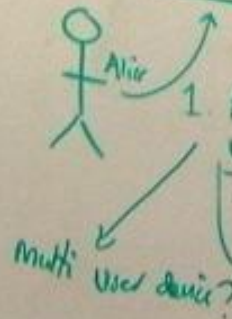 Alice
1
Multi User device?